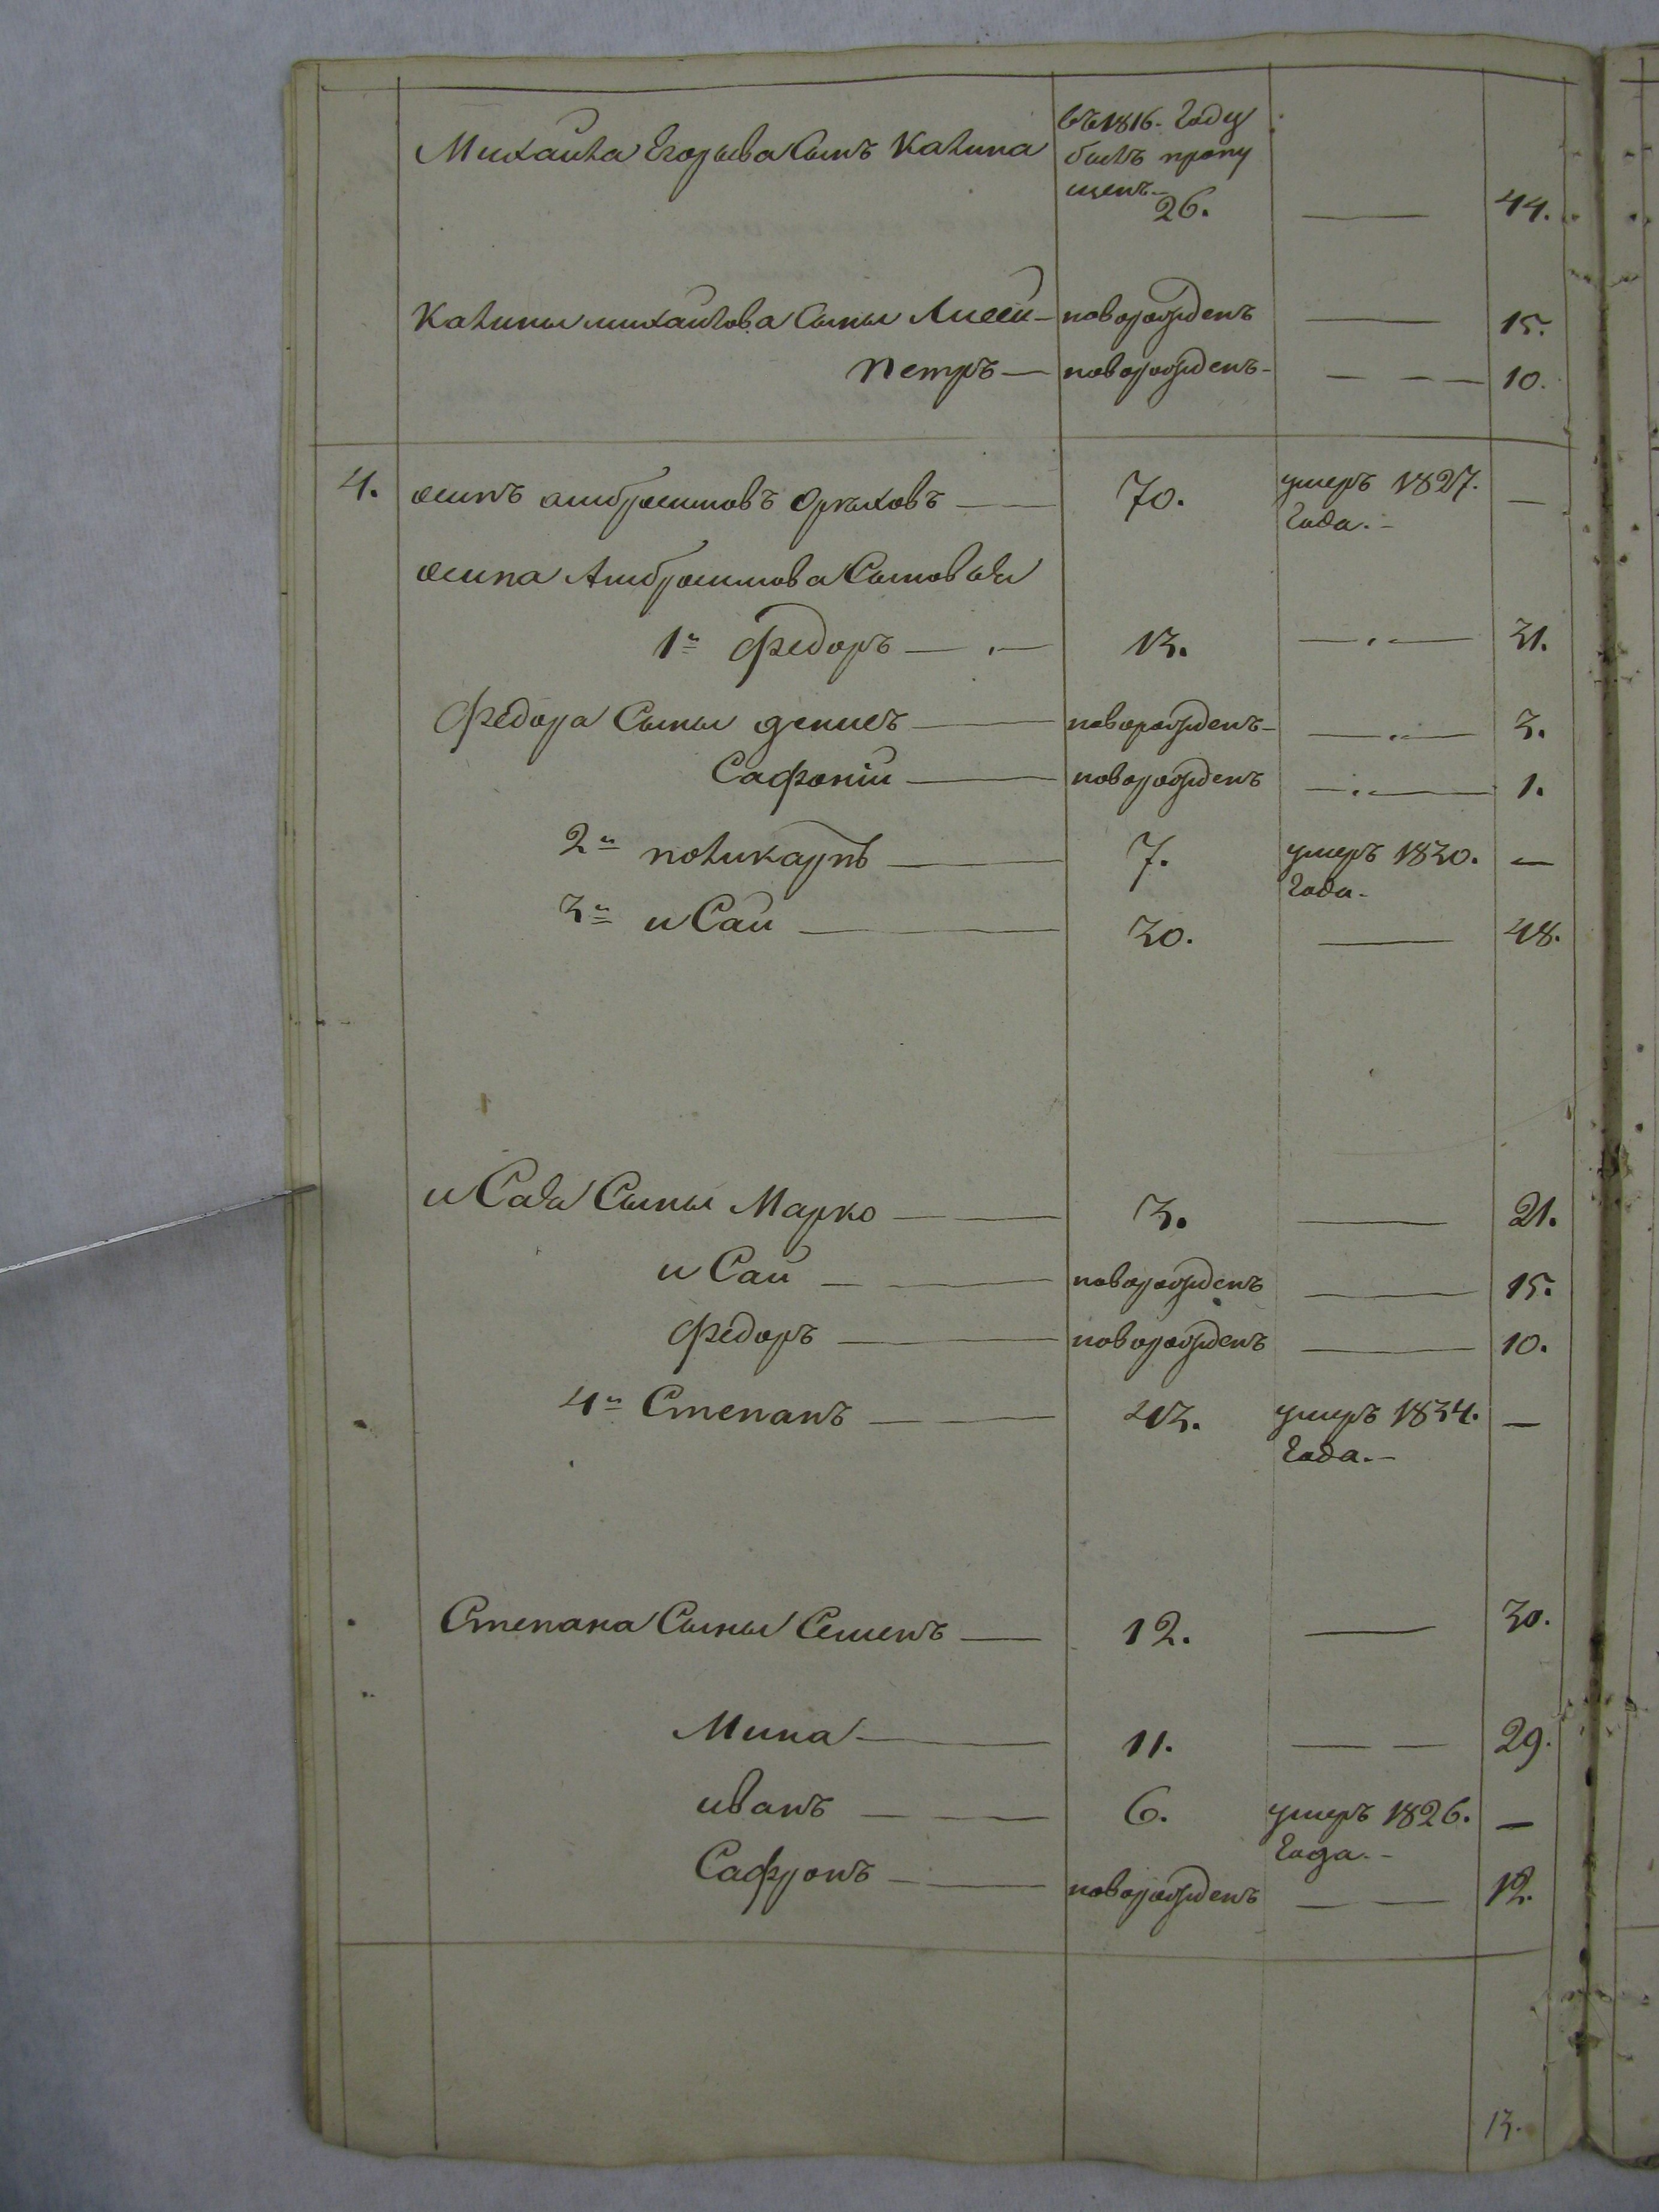 Михаила Егорьева Сынъ Калина въ 1816. Году
былъ пропу
щенъ 26. — 44.
Калины михаилова Сыны Аисей — новорожденъ — 15.
Петръ — новорожденъ — — — 10.
4. осипъ амбросимовъ Орѣховъ — 70. умеръ 1827. —
Года. —
осипа Амбросимова Сыновья
1й Федоръ — 13. — 31.
Федора Сыны денисъ — новорожденъ — 3.
Сафоній — новорожденъ — 1.
2й поликарпъ — 7. умеръ 1830. —
Года —
3й иСай — 30. — 48.
иСая Сыны Марко — 3. — 21.
иСай — новорожденъ — 15.
Федоръ — новорожденъ — 10.
4й Степанъ — 43. умеръ 1834. —
Года. —
Степана Сыны Семенъ — 12. — 30.
Мина — 11. — 29.
иванъ — 6. умеръ 1826. —
Года. —
Сафронъ — новорожденъ — 12.
13.